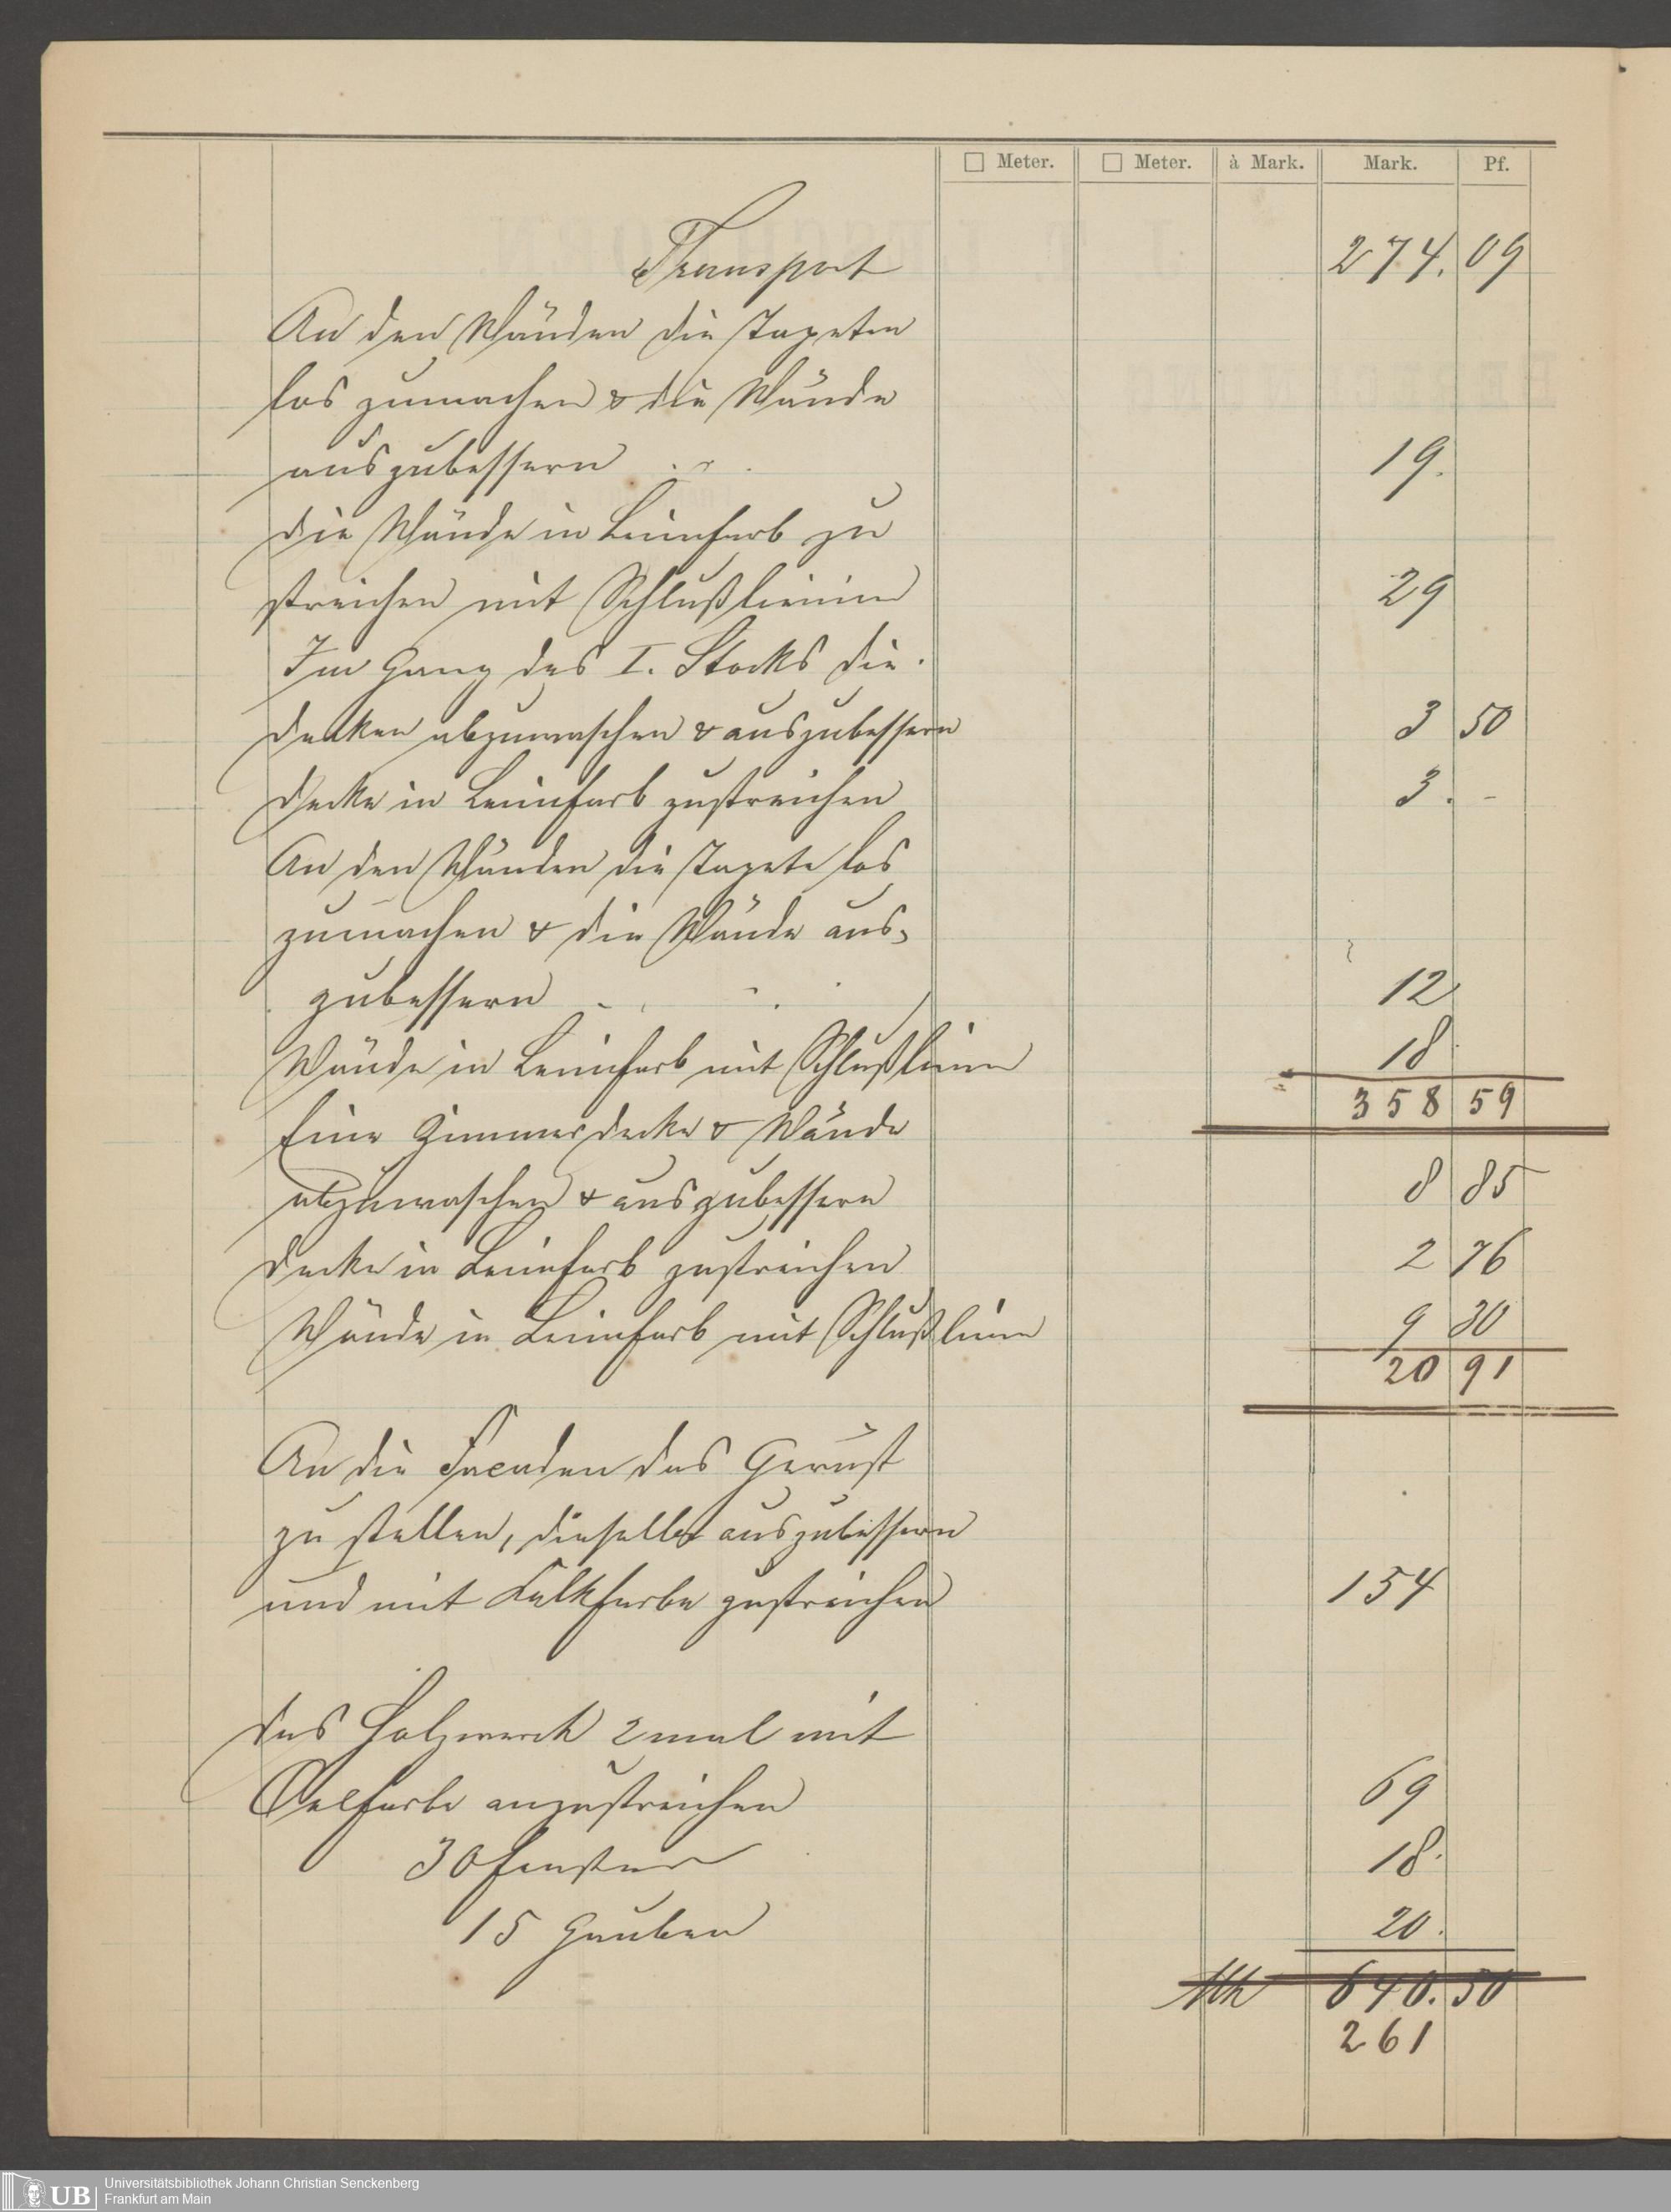 □ Meter. □ Meter. à Mark. Mark. Pf.
Transport 274. 09
An den Wänden die Tapeten
los zumachen & die Wände
auszubessern 19.
die Wände in Leimfarb zu
streichen mit Schlußlinien 29
Im Gang des I. Stocks die
decken abzuwaschen & auszubessern 3 50
Decke in Leimfarb zustreichen 3. -
An den Wänden die Tapete los
zumachen & die Wände aus-
zubessern 12
Wände in Leimfarb mit Schlußlinien 18
358 59
Eine Zimmerdecke & Wände
abzuwaschen & auszubessern 8 85
decke in Leimfarb zustreichen 2 76
Wände in Leimfarb mit Schlußlinien 9 30
20 91
An die Facaden das Gerüst
zu stellen, dieselbe auszubessern
und mit Kalkfarbe zustreichen 154
das Holzwerk 2 mal mit
Oelfarbe anzustreichen 69
30 Fenster 18.
15 Gauben 20.
Mk 640. 50
261
UB Universitätsbibliothek Johann Christian Senckenberg
Frankfurt am Main